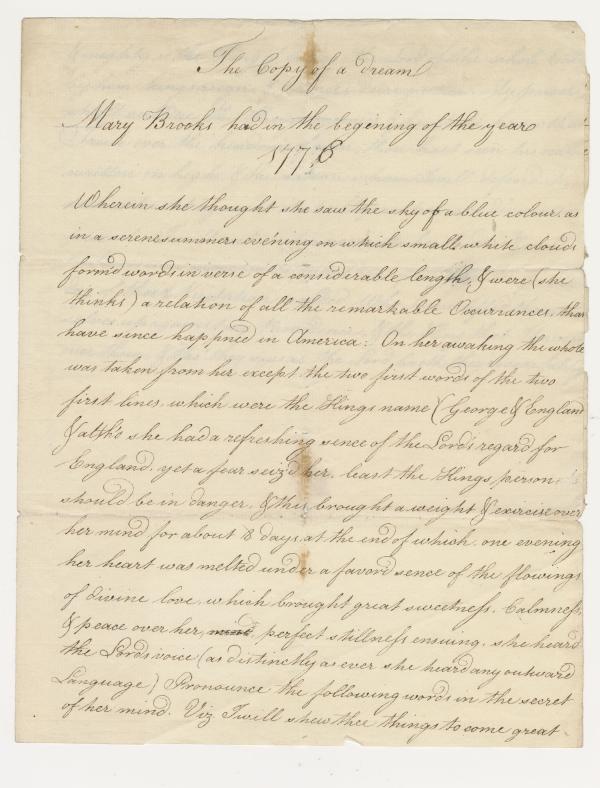 The Copy of a dream
Mary Brooks had in the begening of the year
1778
Wherein she thought she saw the sky of a blue colour, as
in a serene summers evening on which small white clouds
formd words in verse of a considerable length, & were (she
thinks) a relation of all the remarkable Occurrances, that
have since happned in America: On her awaking the whole
was taken from her except the two first words of the two
first lines, which were the Kings name (George & England
& altho she had a refreshing sence of the Lords regard for
England, yet a fear seiz'd her, least the Kings person
should be in danger, & this brought a weight & exercise over
her mind for about 8 days, at the end of which, one evening
her heart was melted under a favord sence of the flowings
of divine love, which brought great sweetness, Calmness,
& peace over her, mind, perfect stillness ensuing, she heard
the Lords voice (as distinctly as ever she heard any outward
Language) Pronounce the following words in the secret
of her mind. Viz I will shew thee things to come great